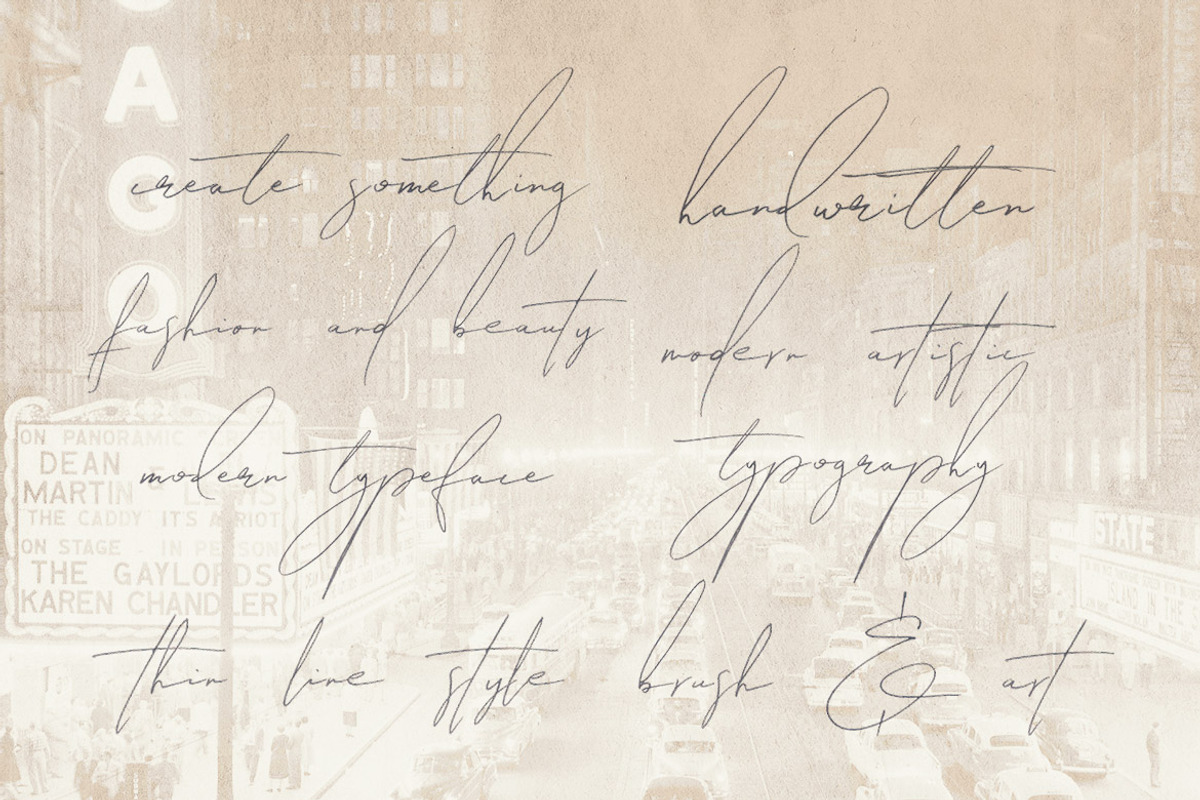 AGO
create something
handwritten
fashion and beauty
modern artistic
modern typeface
typography
thin line style
brush & art
ON PANORAMIC
DEAN
MARTIN LEWIS
THE CADDY IT'S A RIOT
ON STAGE - IN PERSON
THE GAYLORDS
KAREN CHANDLER
STATE
ISLAND IN THE